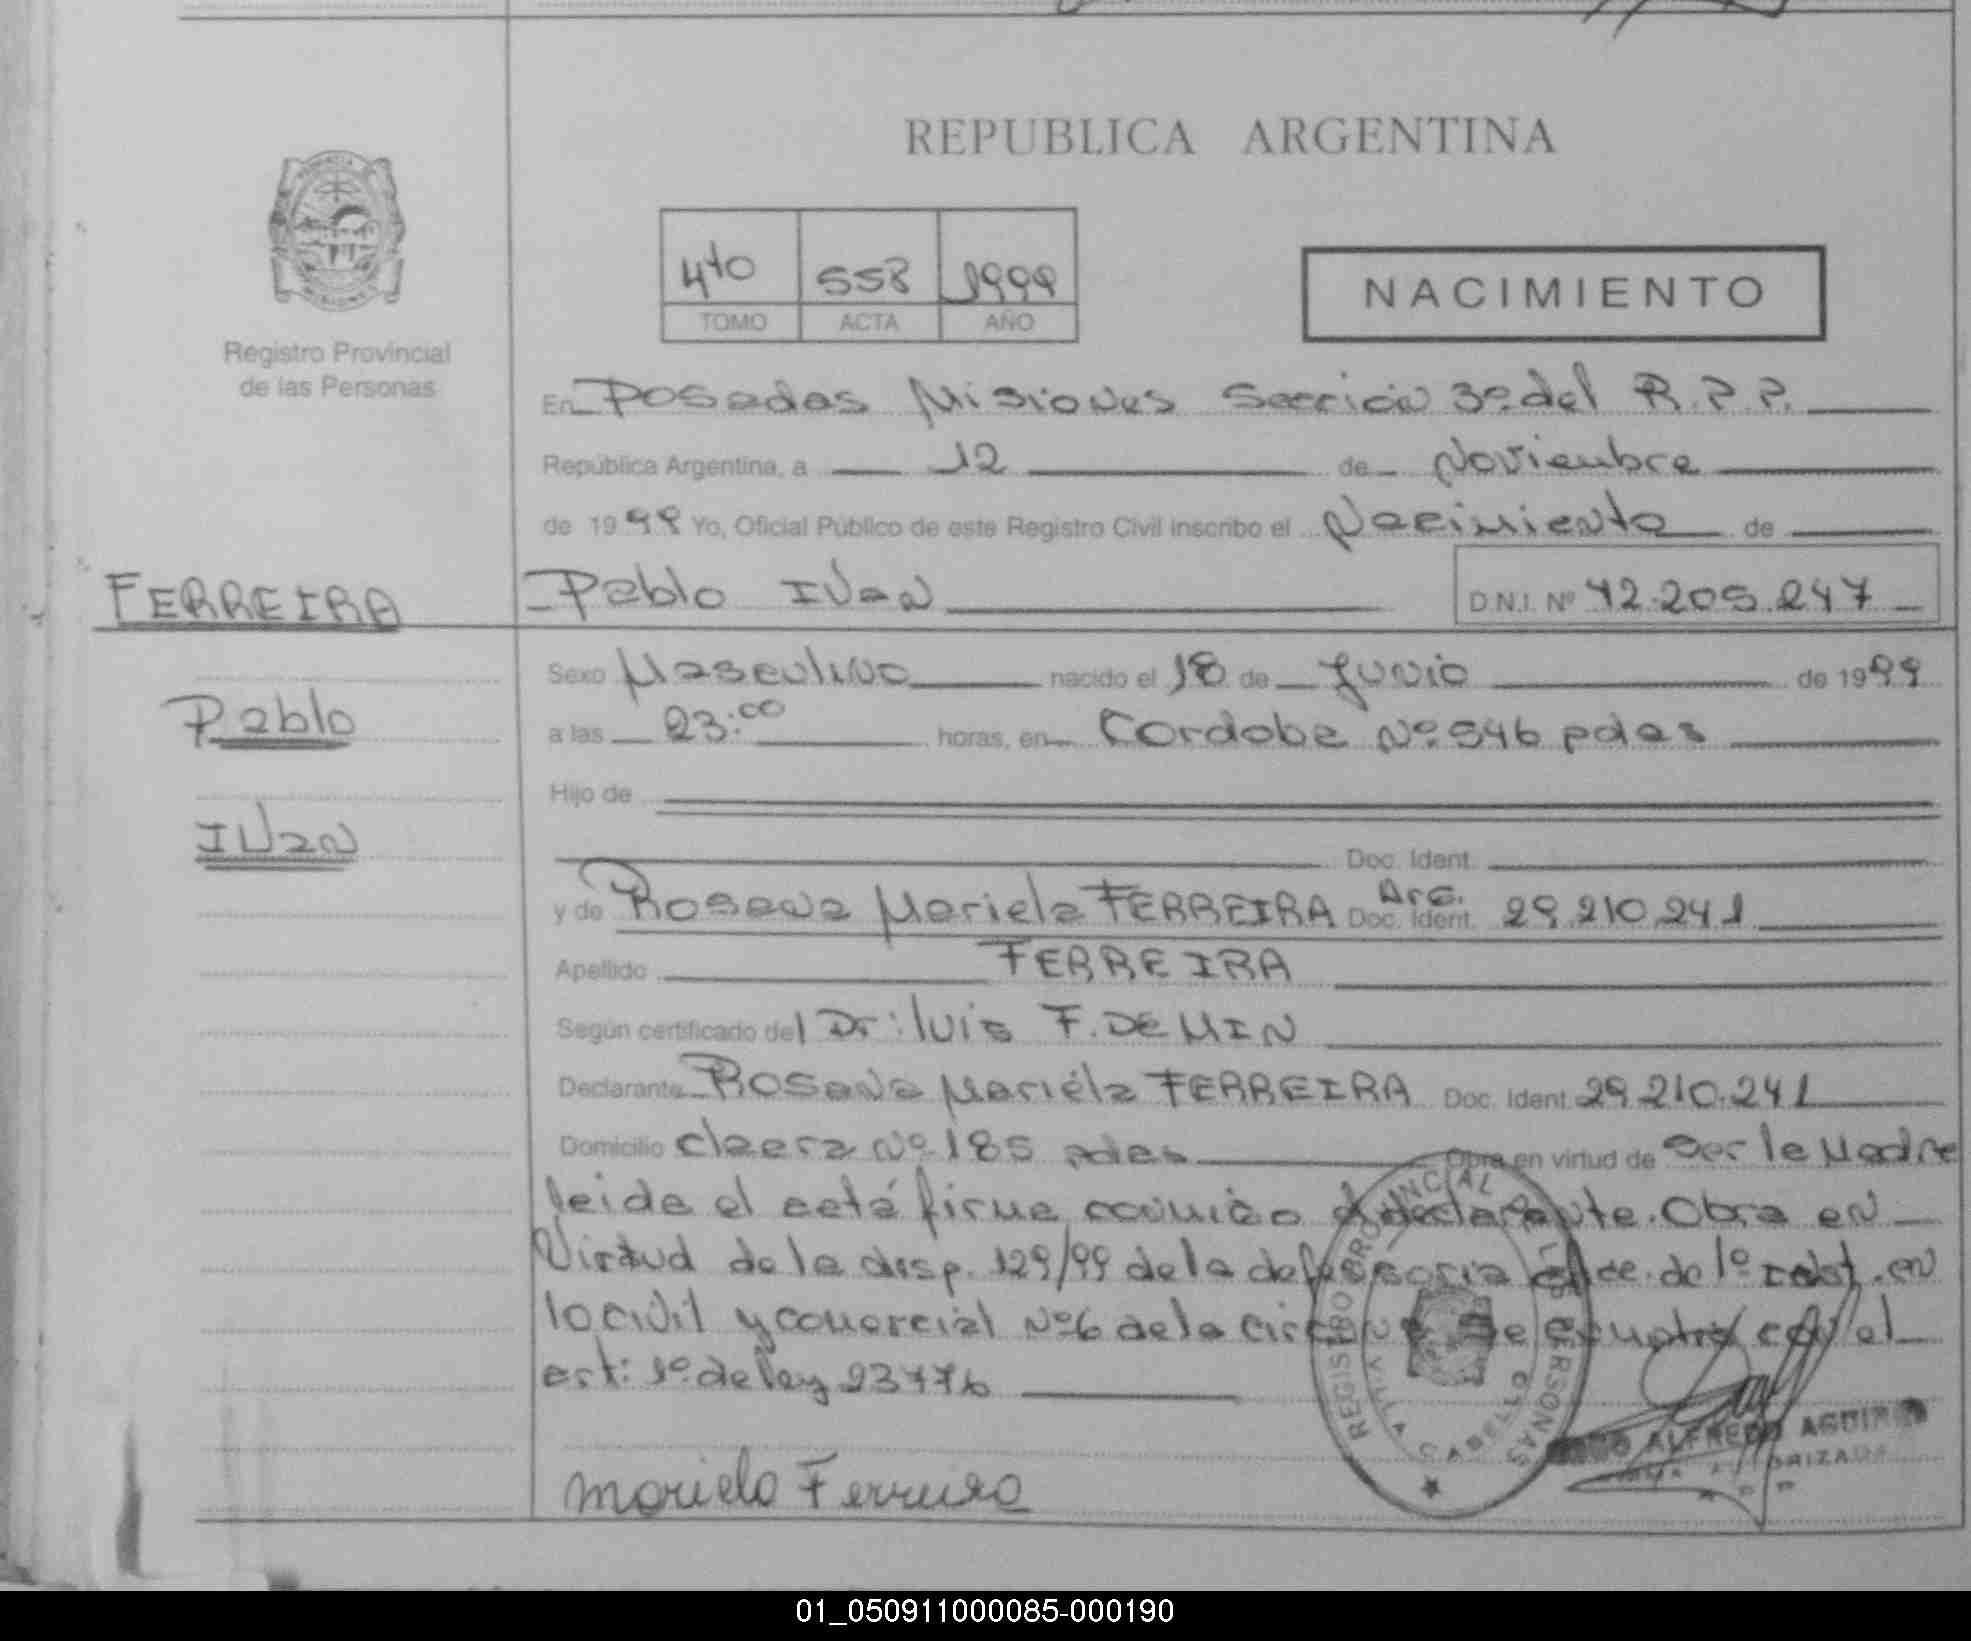 REPUBLICA ARGENTINA
4to 558 1999
TOMO ACTA AÑO
NACIMIENTO
Registro Provincial
de las Personas
En Posadas Misiones Sección 3º del R.P.P.
República Argentina, a 12 de Noviembre
de 1999 Yo, Oficial Público de este Registro Civil inscribo el Nacimiento de
FERREIRA Pablo Ivan D.N.I. Nº 42.205.247
Sexo Masculino nacido el 18 de Junio de 1999
Pablo
a las 23:00 horas, en Cordoba Nº 546 pdas
Hijo de
Ivan
Doc. Ident.
y de Rosana Mariela FERREIRA Doc. Ident. Arg. 29.210.241
Apellido FERREIRA
Según certificado del Dr: luis F. DE MIN
Declarante Rosana Mariela FERREIRA Doc. Ident. 29.210.241
Domicilio Nº 185 pdas Obra en virtud de Ser la Madre
leida el acta firma conmigo declarante. Obra en
Virtud de la disp. 129/99 de la de 1º Inst. en
lo civil y comercial Nº 6 de la el
art: 1º de ley 23776
Mariela Ferreira
REGISTRO PROVINCIAL DE LAS PERSONAS
VILLA CABELLO
ALFREDO
01_050911000085-000190